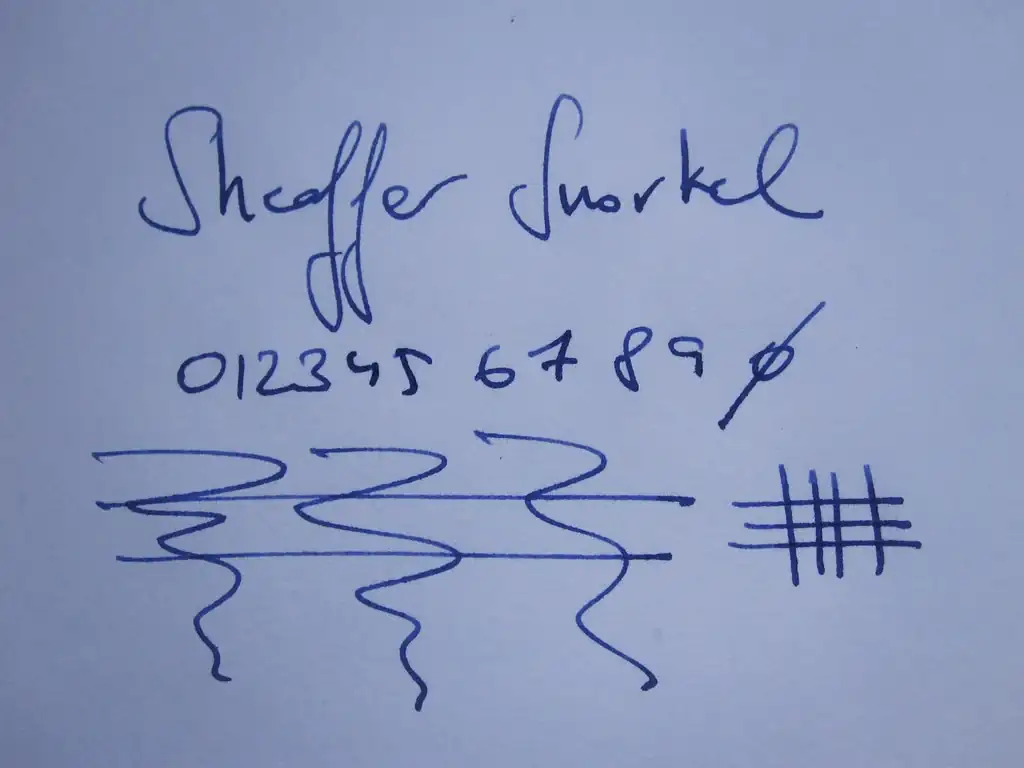 Sheaffer Snorkel
012345 67 89 ∅